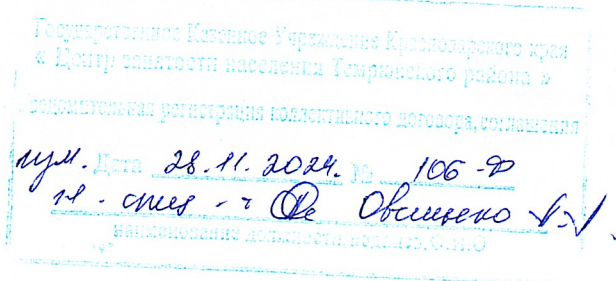 Государственное Казенное Учреждение Краснодарского края
« Центр занятости населения Темрюкского района »
уведомительная регистрация коллективного договора, соглашения
Дата 28.11.2024. № 106-Ф
гл. спец
наименование должности, подпись, Ф.И.О